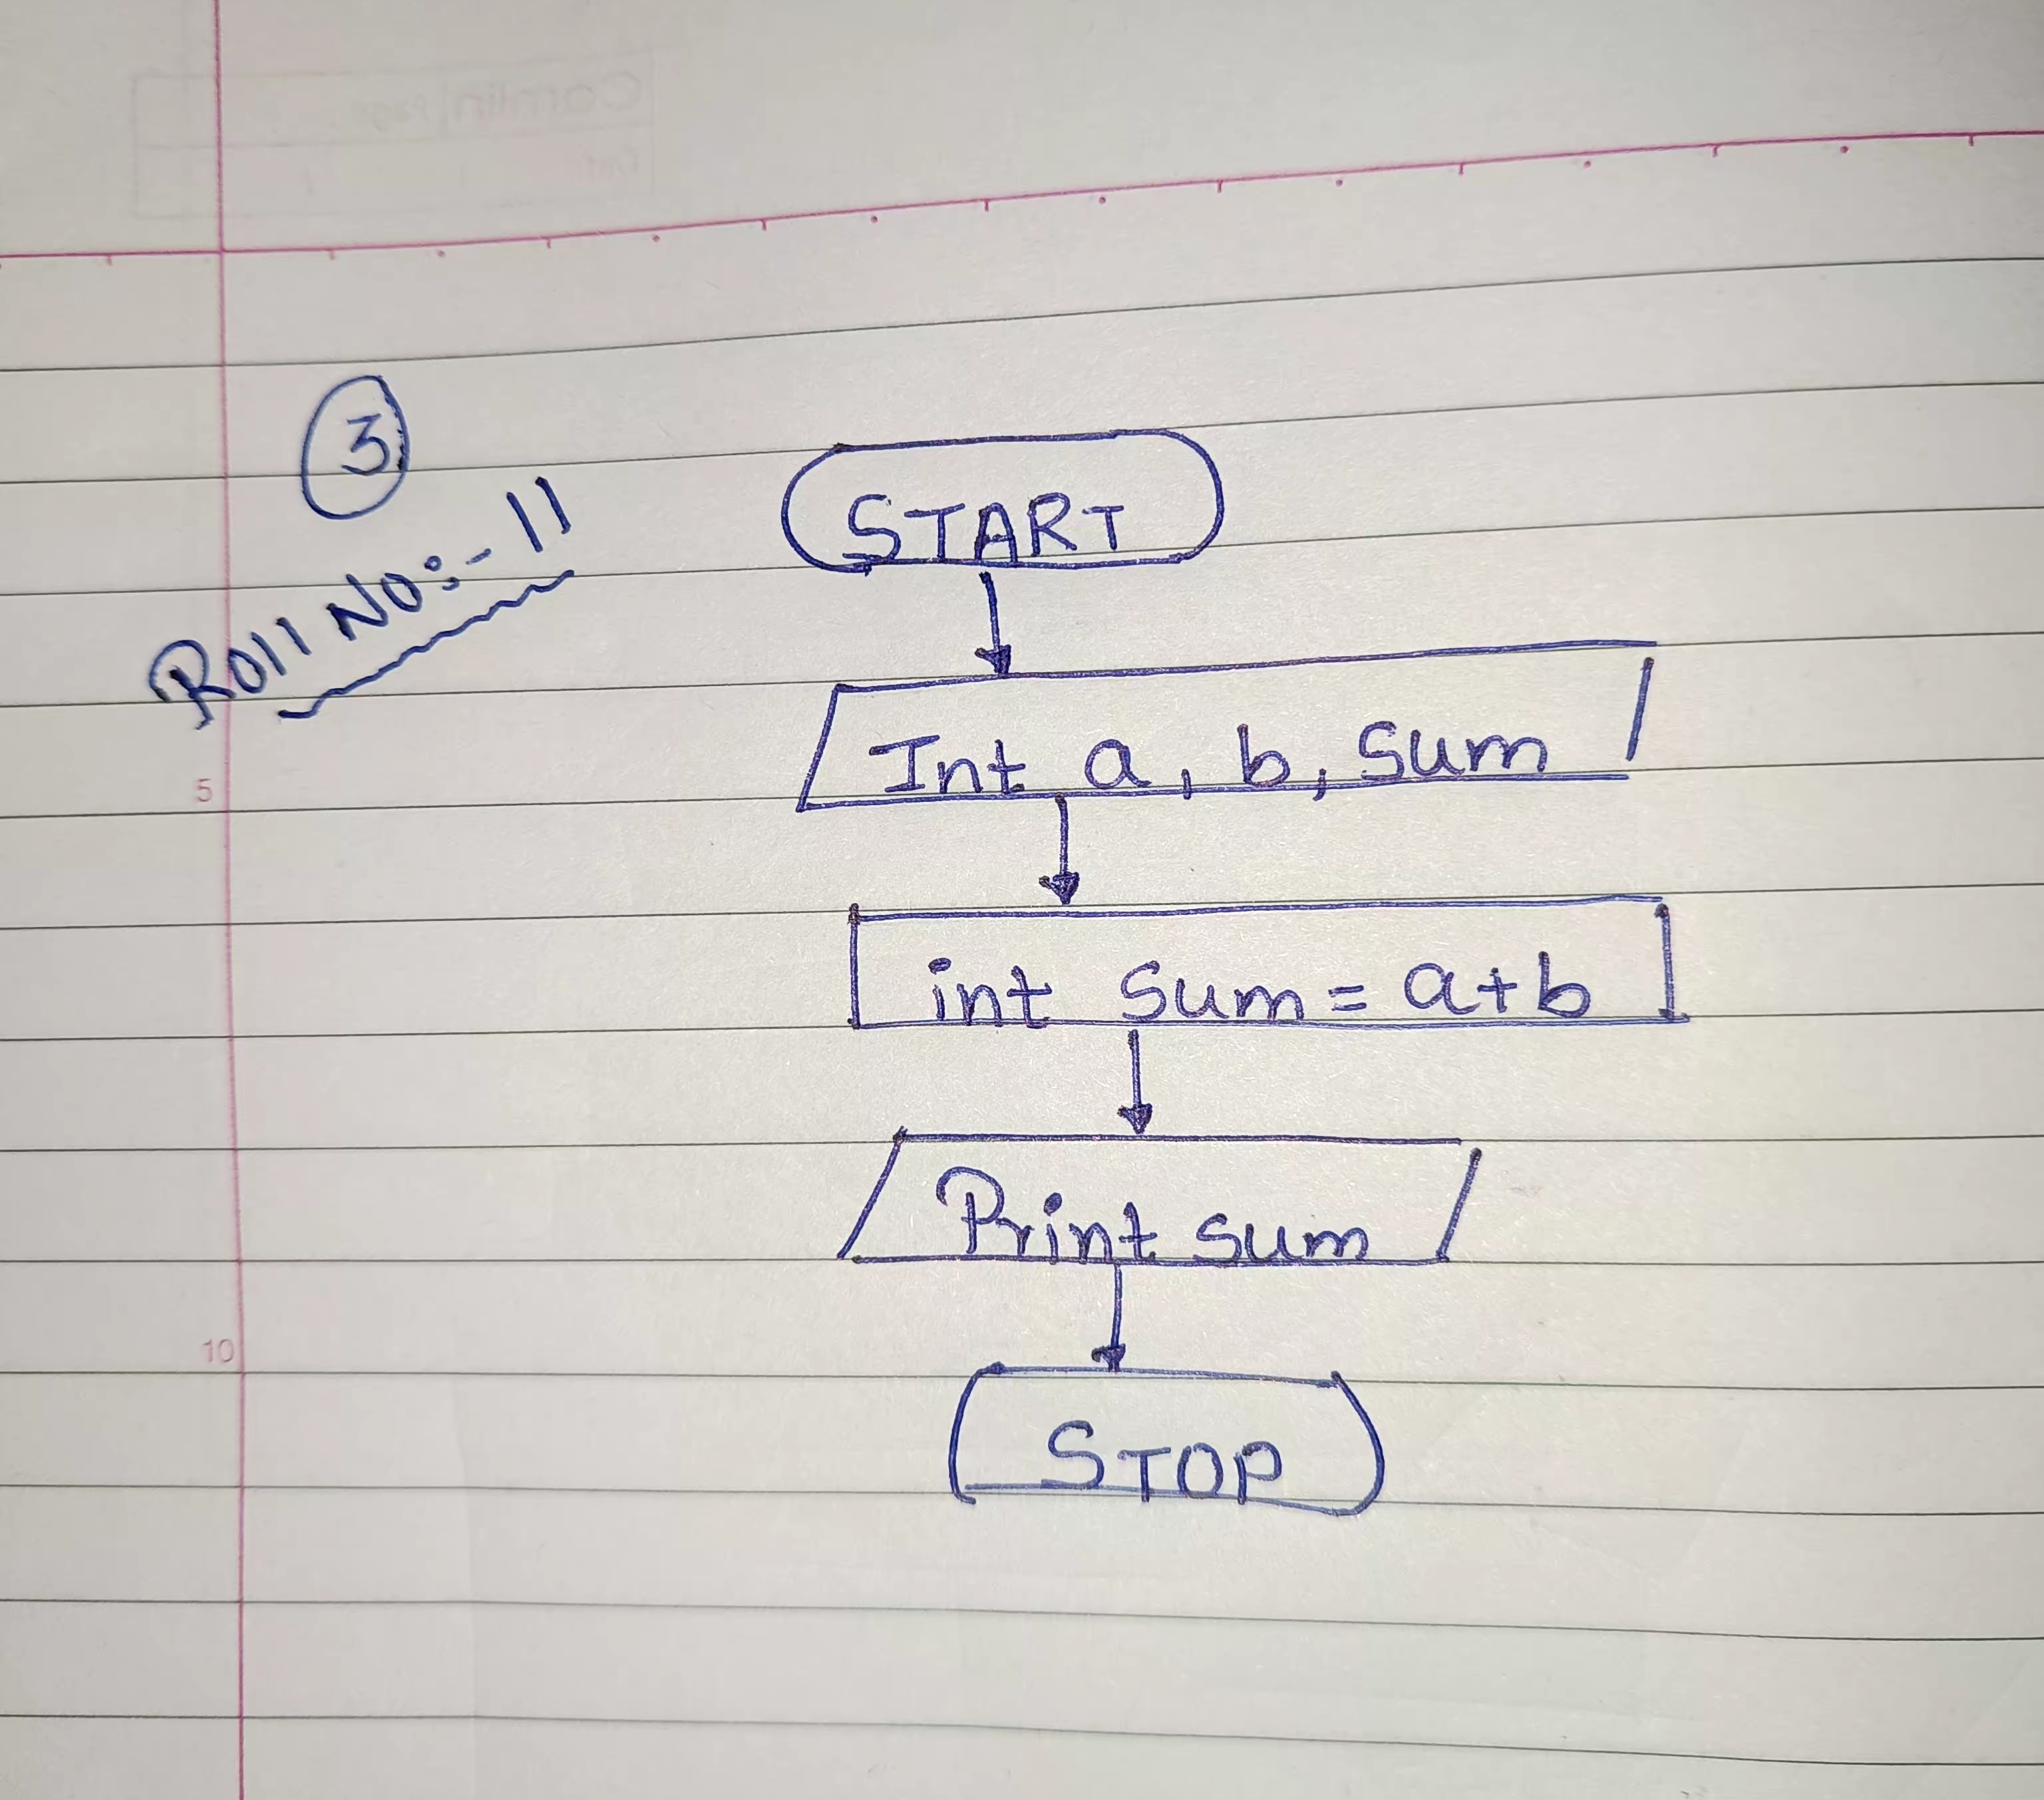 Camlin Page
Date
3
Roll No:- 11
START
Int a, b, Sum
5
int Sum = a+b
Print sum
10
STOP